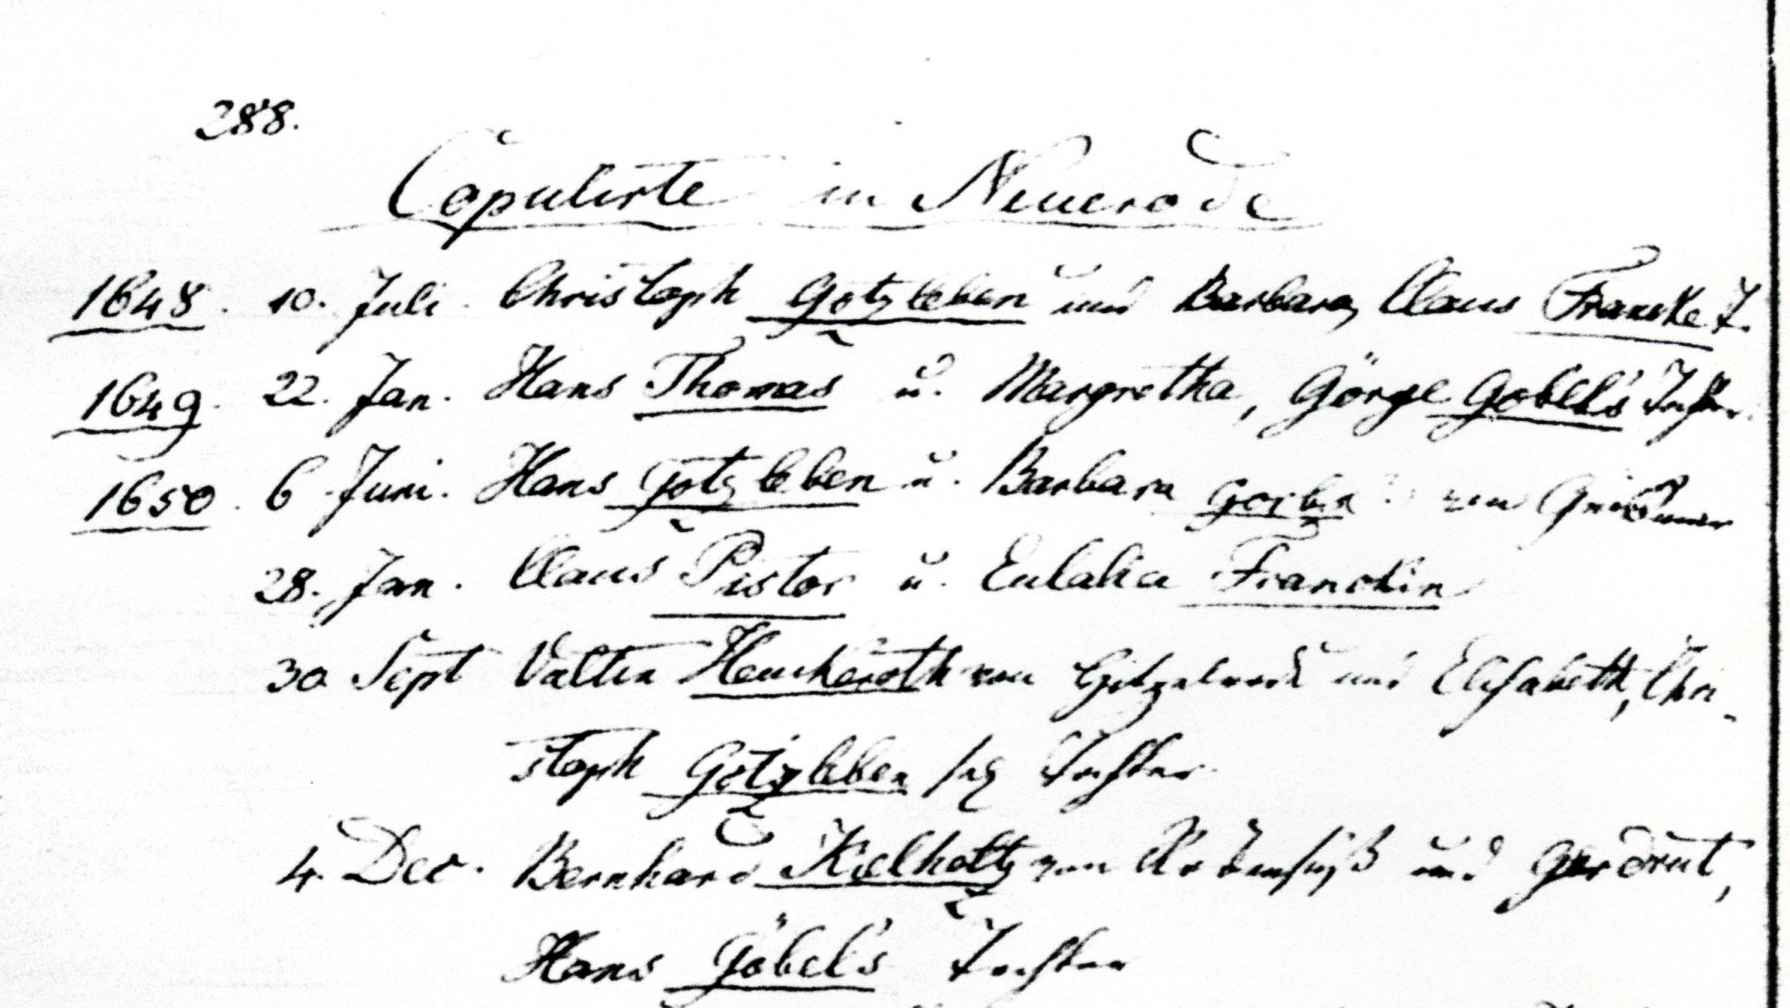 288.
Copulirte in Neuerode
1648. 10. Juli. Christoph Götzleben und Barbara, Claus Francke T.
1649. 22. Jan. Hans Thomas u. Margretha, Görge Gobel's Tochter.
1650. 6 Juni. Hans Götzleben u. Barbara von
28. Jan. Claus Pistor u. Eulalia Franckin
30 Sept Valtin Henckeroth von und Elisabeth, Chri-
stoph Götzleben sel Tochter.
4. Dec. Bernhard Kielholtz von und Gerdrut,
Hans Göbel's Tochter